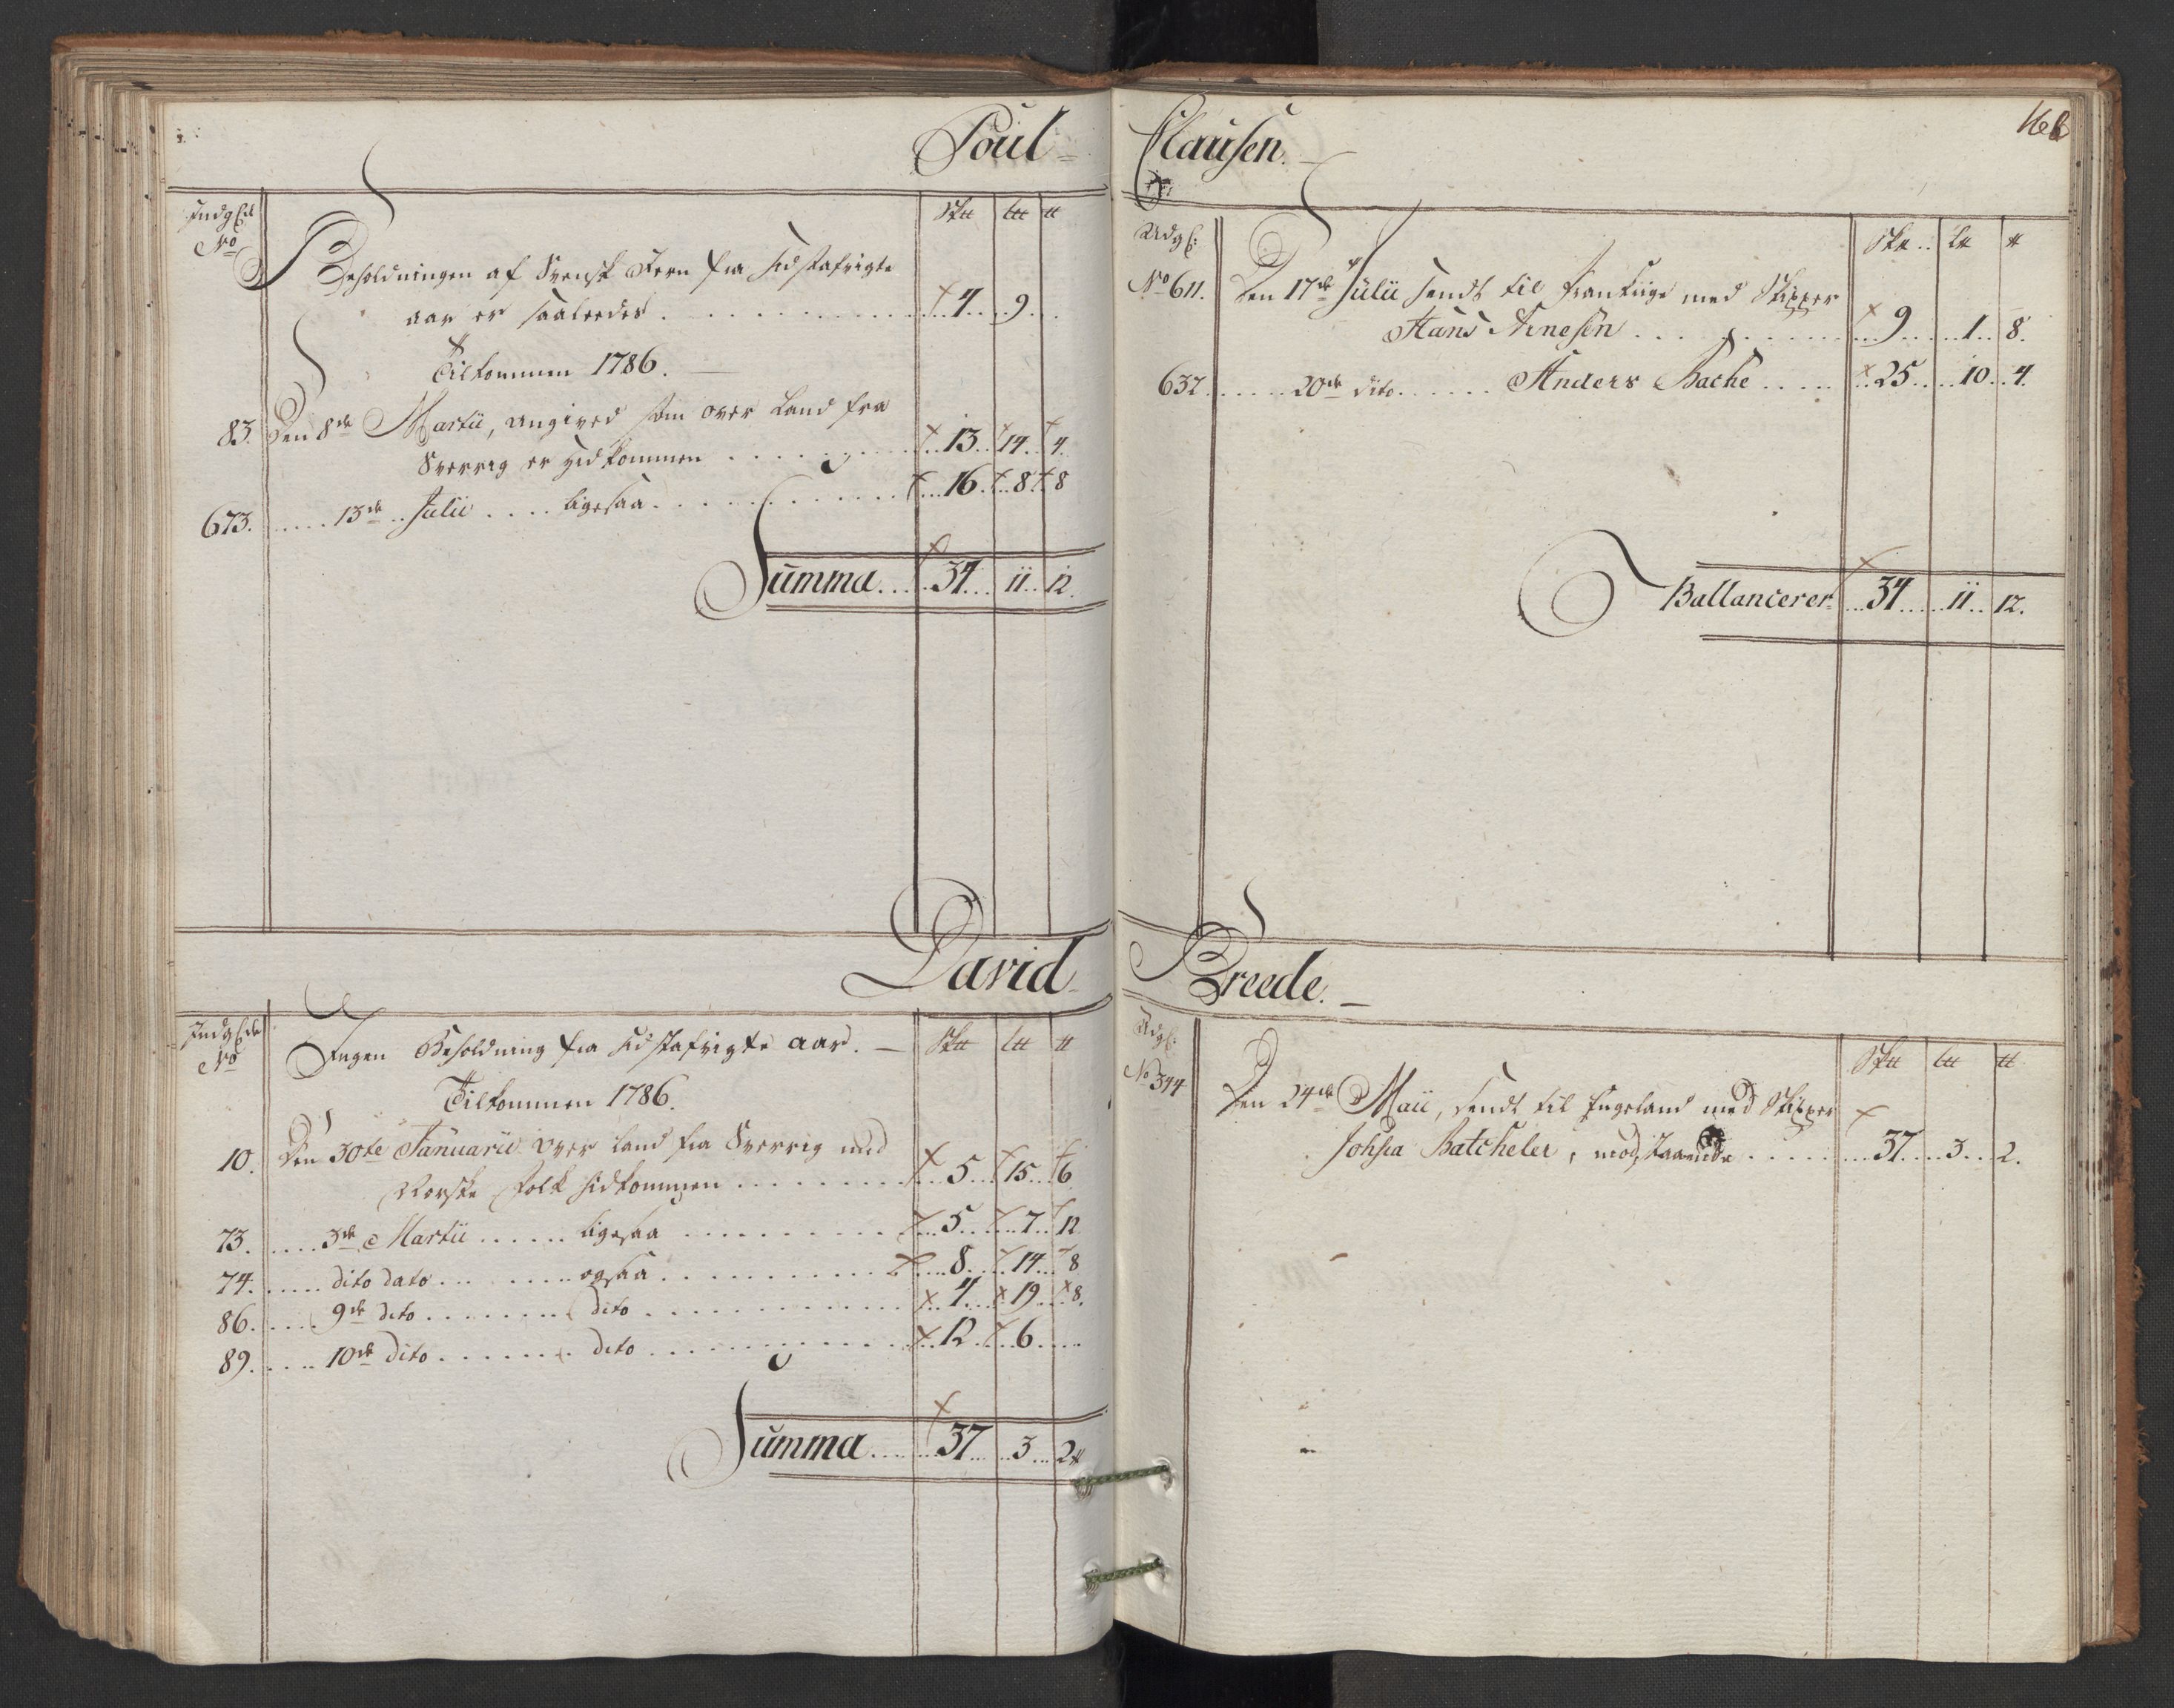 Poul Clausen.
166
Indg sed
No
Sk℔ L℔ ℔
Beholdningen af Svensk Jern fra sidstafvigte
aar er saaledes . . . 4 . . 9 . .
Tilkommen 1786.
83. Den 8de Martii, angived som over Land fra
Sverrig er hidkommen . . . 13. 14. 4.
673. . . . 13de . . Julii . . . . ligesaa . . . 16. 8. 8
Summa . . . 34 . . 11 . . 12.
Udgs:
Sk℔ . . L℔ ℔
No 611. Den 17de Julii sendt til Frankrige med Skipper
Hans Arnesen . . . 9 . . . 1 . . 8.
637. . . . 20de dito . . . Anders Bache . . . 25 . . . 10 . . 4.
Ballancerer . . . 34 . . . 11 . . 12.
David Breede.
Indg sede
No
Ingen Beholdning fra sidstafvigte aar. — Sk℔ L℔ ℔
Tilkommen 1786.
10. Den 30te Januarii over Land fra Sverrig med
Norske Folk hidkommen . . . 5 . . 15 . . 6
73. . . . 3de Martii . . . ligesaa . . . 5 . . 7 . . 12
74. . . . dito dato . . . ogsaa . . . 8 . . 14 . . 8
86. . . . 9de dito . . . dito . . . 4 . . 19 . . 8.
89. . . . 10de dito . . . dito . . . 12 . . 6 . . .
Summa . . . 37 . . 3 . . 2℔
Udgs:
Sk℔ L℔ ℔
No 344 Den 24de Maii, sendt til Engeland med Skipper
Batcheler, . . . 37 . . . 3 . . 2.